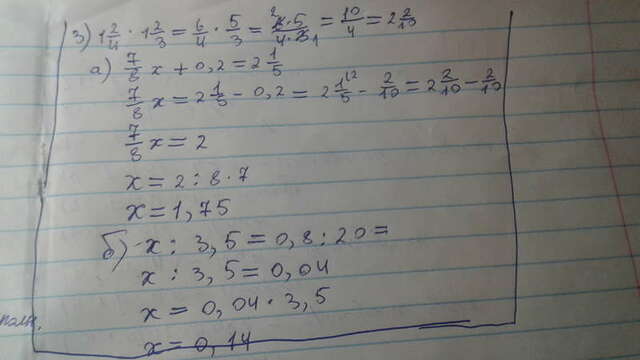 3) 1 2/4 · 1 2/3 = 6/4 · 5/3 = 6·5/4·3 = 10/4 = 2 2/10
а) 7/8 x + 0,2 = 2 1/5
7/8 x = 2 1/5 - 0,2 = 2 1/5 - 2/10 = 2 2/10 - 2/10
7/8 x = 2
x = 2 : 8 · 7
x = 1,75
б) x : 3,5 = 0,8 : 20 =
x : 3,5 = 0,04
x = 0,04 · 3,5
x = 0,14